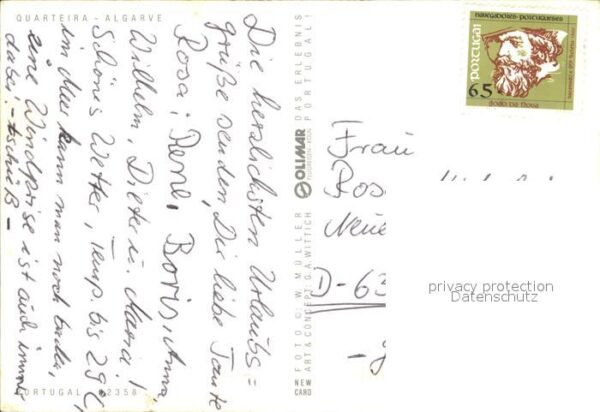 QUARTEIRA - ALGARVE
Die herzlichsten Urlaubs=
grüße senden Dir liebe Tante
Rosa: René, Boris, Anna,
Wilhelm, Dieter u. Maria!
Schönes Wetter, Temp. bis 29°C,
im Meer kann man noch baden,
eine Windprise ist auch immer
dabei, - tschüß -
PORTUGAL 2358
FOTO © W. MÜLLER DAS ERLEBNIS
ART & CONCEPT G.A. WITTICH PORTUGAL!
OLIMAR
FLUGREISEN · KÖLN
NEW
CARD
NAVEGADORES PORTUGUESES
PORTUGAL
65
JOÃO DA NOVA
Frau
Ros
Neue
D-63
privacy protection
Datenschutz